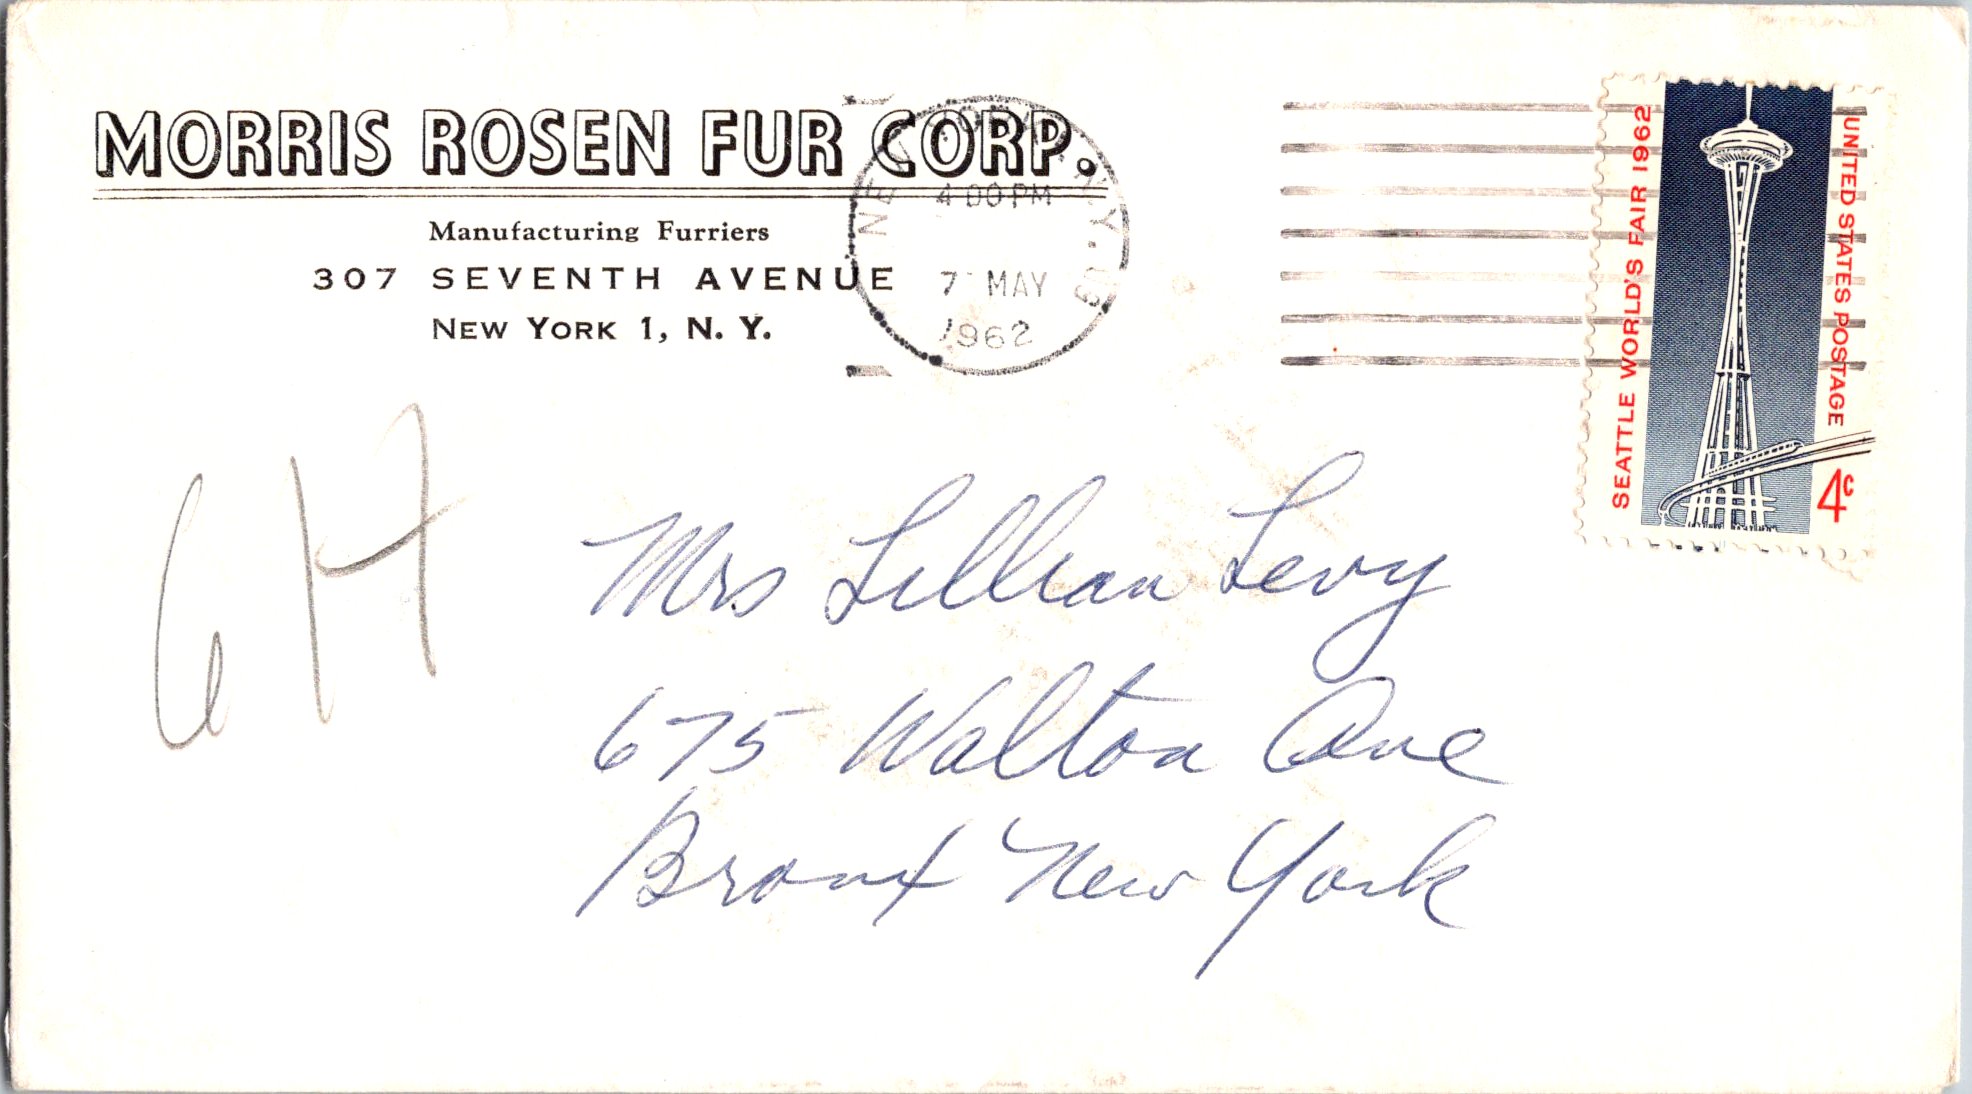 MORRIS ROSEN FUR CORP.
Manufacturing Furriers
307 SEVENTH AVENUE
NEW YORK 1, N. Y.
NEW YORK, N.Y.
4 00 PM
7 MAY
1962
SEATTLE WORLD'S FAIR 1962
UNITED STATES POSTAGE
4c
6H
Mrs Lillian Levy
675 Walton Ave
Bronx New York